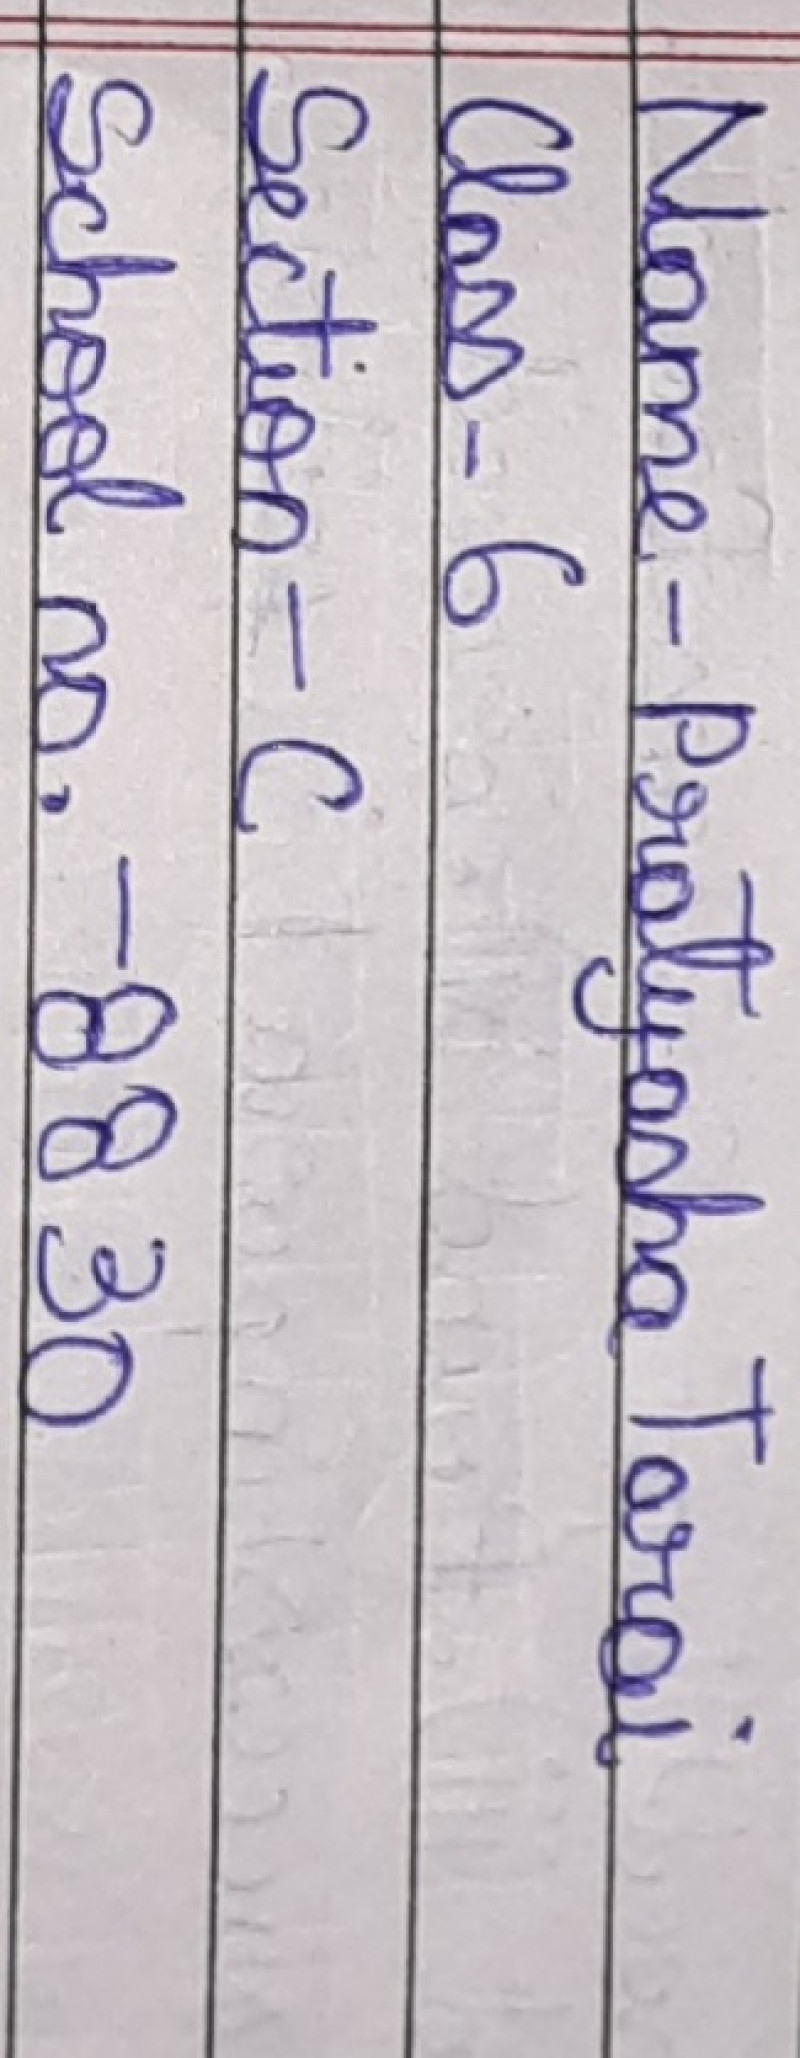 Name - Pratyasha Tarai
Class - 6
Section - C
School no. - 8830